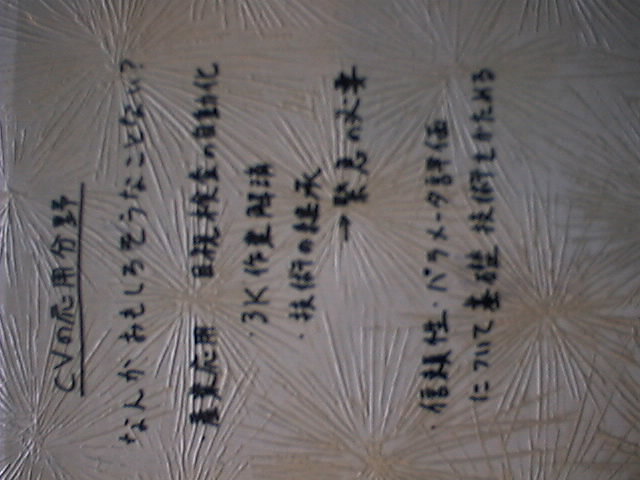 CVの応用分野
なんかおもしろそうなことない?
・産業応用 目視検査の自動化
・3K作業解消
・技術の継承
→緊急の必要
・信頼性・パラメータ評価
について基礎技術をかためる